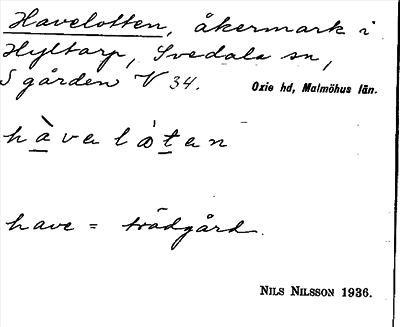 Havelotten, åkermark i
Hyltarp, Svedala sn,
S gården V 34. Oxie hd, Malmöhus län.
hàvalòtan
have = trädgård.
NILS NILSSON 1936.